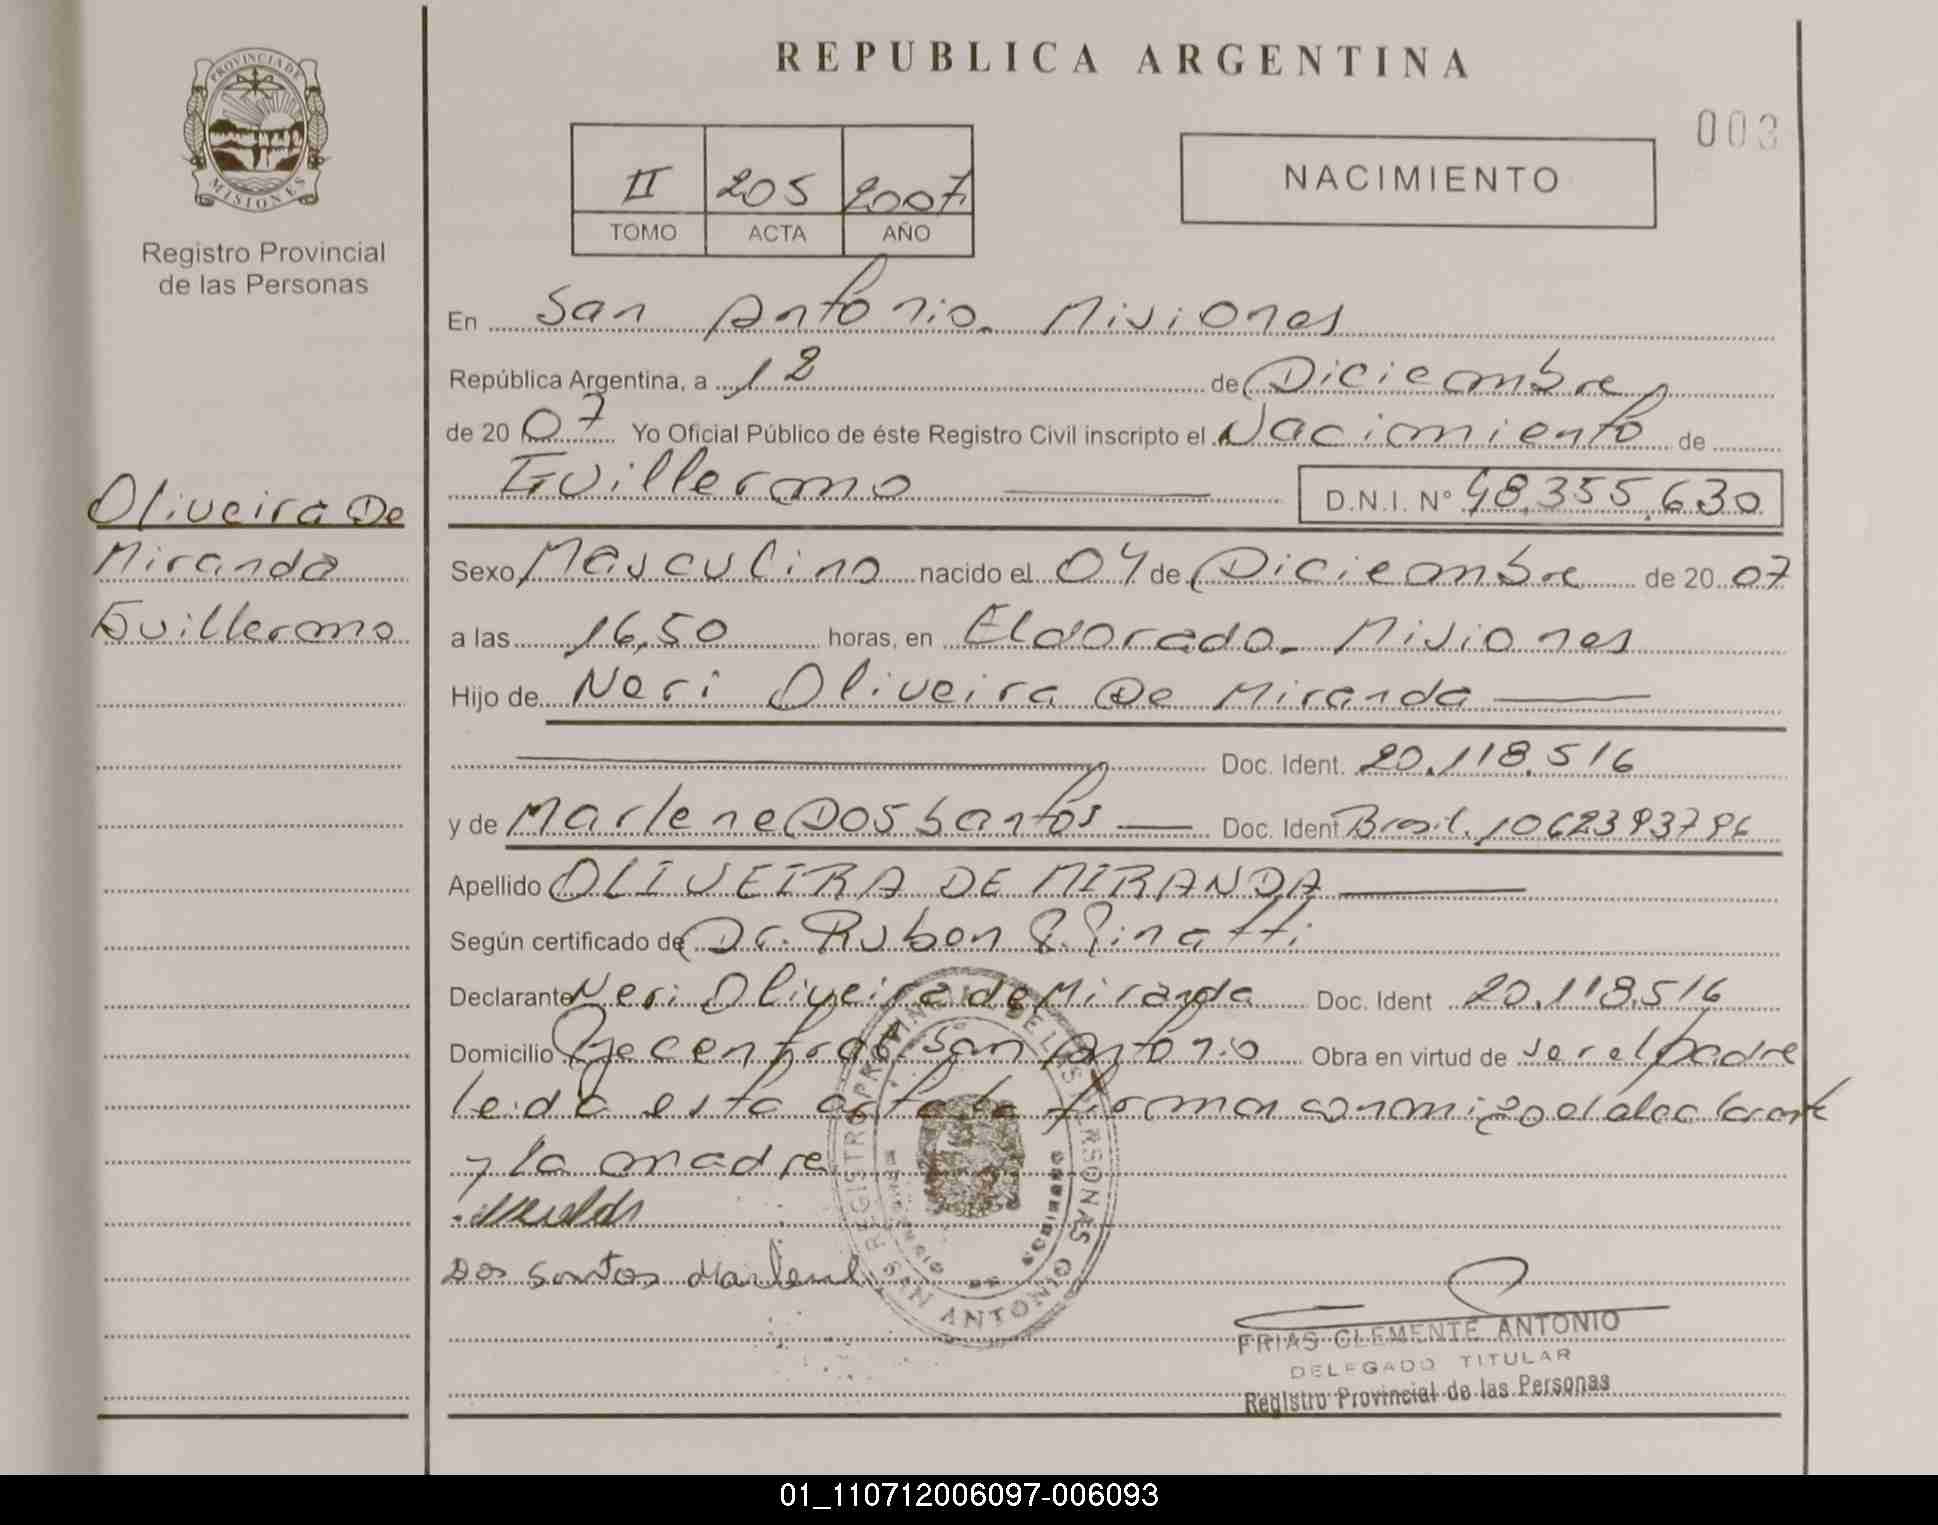 REPUBLICA ARGENTINA
003
PROVINCIA DE MISIONES
Registro Provincial
de las Personas
II 205 2007
TOMO ACTA AÑO
NACIMIENTO
En San Antonio. Misiones
República Argentina, a 12 de Diciembre
de 2007 Yo Oficial Público de éste Registro Civil inscripto el Nacimiento de
Guillermo D.N.I. N° 48.355.630
Oliveira De
Miranda
Guillermo
Sexo Masculino nacido el 04 de Diciembre de 2007
a las 16,50 horas, en Eldorado. Misiones
Hijo de Neri Oliveira De Miranda
Doc. Ident. 20.118.516
y de Marlene Dos Santos Doc. Ident Brasil. 1062393796
Apellido OLIVEIRA DE MIRANDA
Según certificado de Dr. Ruben Pinatti
Declarante Neri Oliveira de Miranda Doc. Ident 20.118.516
Domicilio San Antonio Obra en virtud de ser el padre
leida esta acta la firman conmigo el declarante
y la madre
Dos Santos Marlene
REGISTRO PROVINCIAL DE LAS PERSONAS
SAN ANTONIO
FRIAS CLEMENTE ANTONIO
DELEGADO TITULAR
Registro Provincial de las Personas
01_110712006097-006093